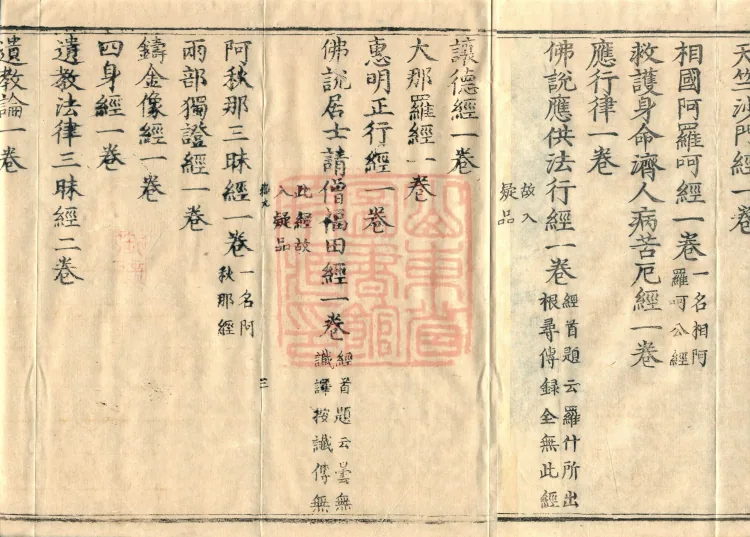 天竺沙門經一卷
相國阿羅呵經一卷 一名相阿羅呵公經
救護身命濟人病苦厄經一卷
應行律一卷
佛說應供法行經一卷 經首題云羅什所出根尋傳録全無此經
故入疑品
讓德經一卷
大那羅經一卷
惠明正行經一卷
佛說居士請僧福田經一卷 經首題云曇無讖譯按讖傳無
此經故入疑品
三
阿秋那三昧經一卷 一名阿秋那經
兩部獨證經一卷
鑄金像經一卷
四身經一卷
遺教法律三昧經二卷
遺教論一卷